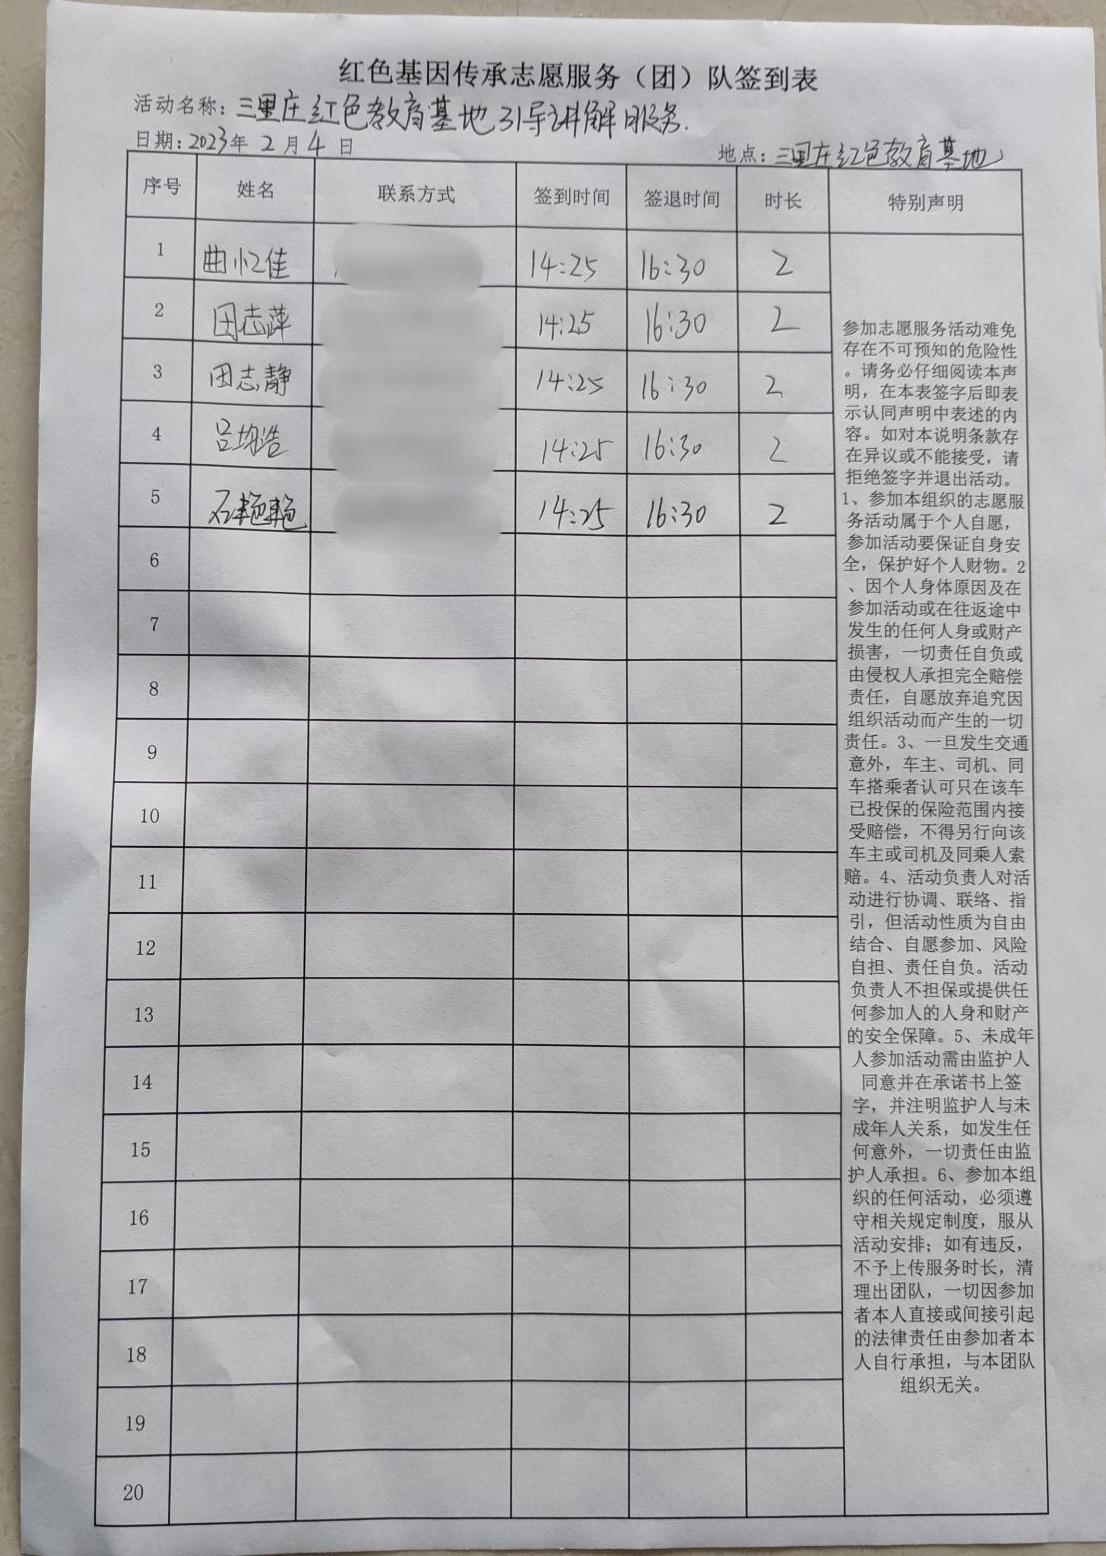 红色基因传承志愿服务（团）队签到表
活动名称：三里庄红色教育基地引导讲解服务.
日期：2023年2月4日 地点：三里庄红色教育基地
序号 姓名 联系方式 签到时间 签退时间 时长 特别声明
1 曲忆佳 14:25 16:30 2
2 田志萍 14:25 16:30 2
3 田志静 14:25 16:30 2
4 吕 浩 14:25 16:30 2
5 石艳艳 14:25 16:30 2
6
7
8
9
10
11
12
13
14
15
16
17
18
19
20
参加志愿服务活动难免
存在不可预知的危险性
。请务必仔细阅读本声
明，在本表签字后即表
示认同声明中表述的内
容。如对本说明条款存
在异议或不能接受，请
拒绝签字并退出活动。
1、参加本组织的志愿服
务活动属于个人自愿，
参加活动要保证自身安
全，保护好个人财物。2
、因个人身体原因及在
参加活动或在往返途中
发生的任何人身或财产
损害，一切责任自负或
由侵权人承担完全赔偿
责任，自愿放弃追究因
组织活动而产生的一切
责任。3、一旦发生交通
意外，车主、司机、同
车搭乘者认可只在该车
已投保的保险范围内接
受赔偿，不得另行向该
车主或司机及同乘人索
赔。4、活动负责人对活
动进行协调、联络、指
引，但活动性质为自由
结合、自愿参加、风险
自担、责任自负。活动
负责人不担保或提供任
何参加人的人身和财产
的安全保障。5、未成年
人参加活动需由监护人
同意并在承诺书上签
字，并注明监护人与未
成年人关系，如发生任
何意外，一切责任由监
护人承担。6、参加本组
织的任何活动，必须遵
守相关规定制度，服从
活动安排；如有违反，
不予上传服务时长，清
理出团队，一切因参加
者本人直接或间接引起
的法律责任由参加者本
人自行承担，与本团队
组织无关。